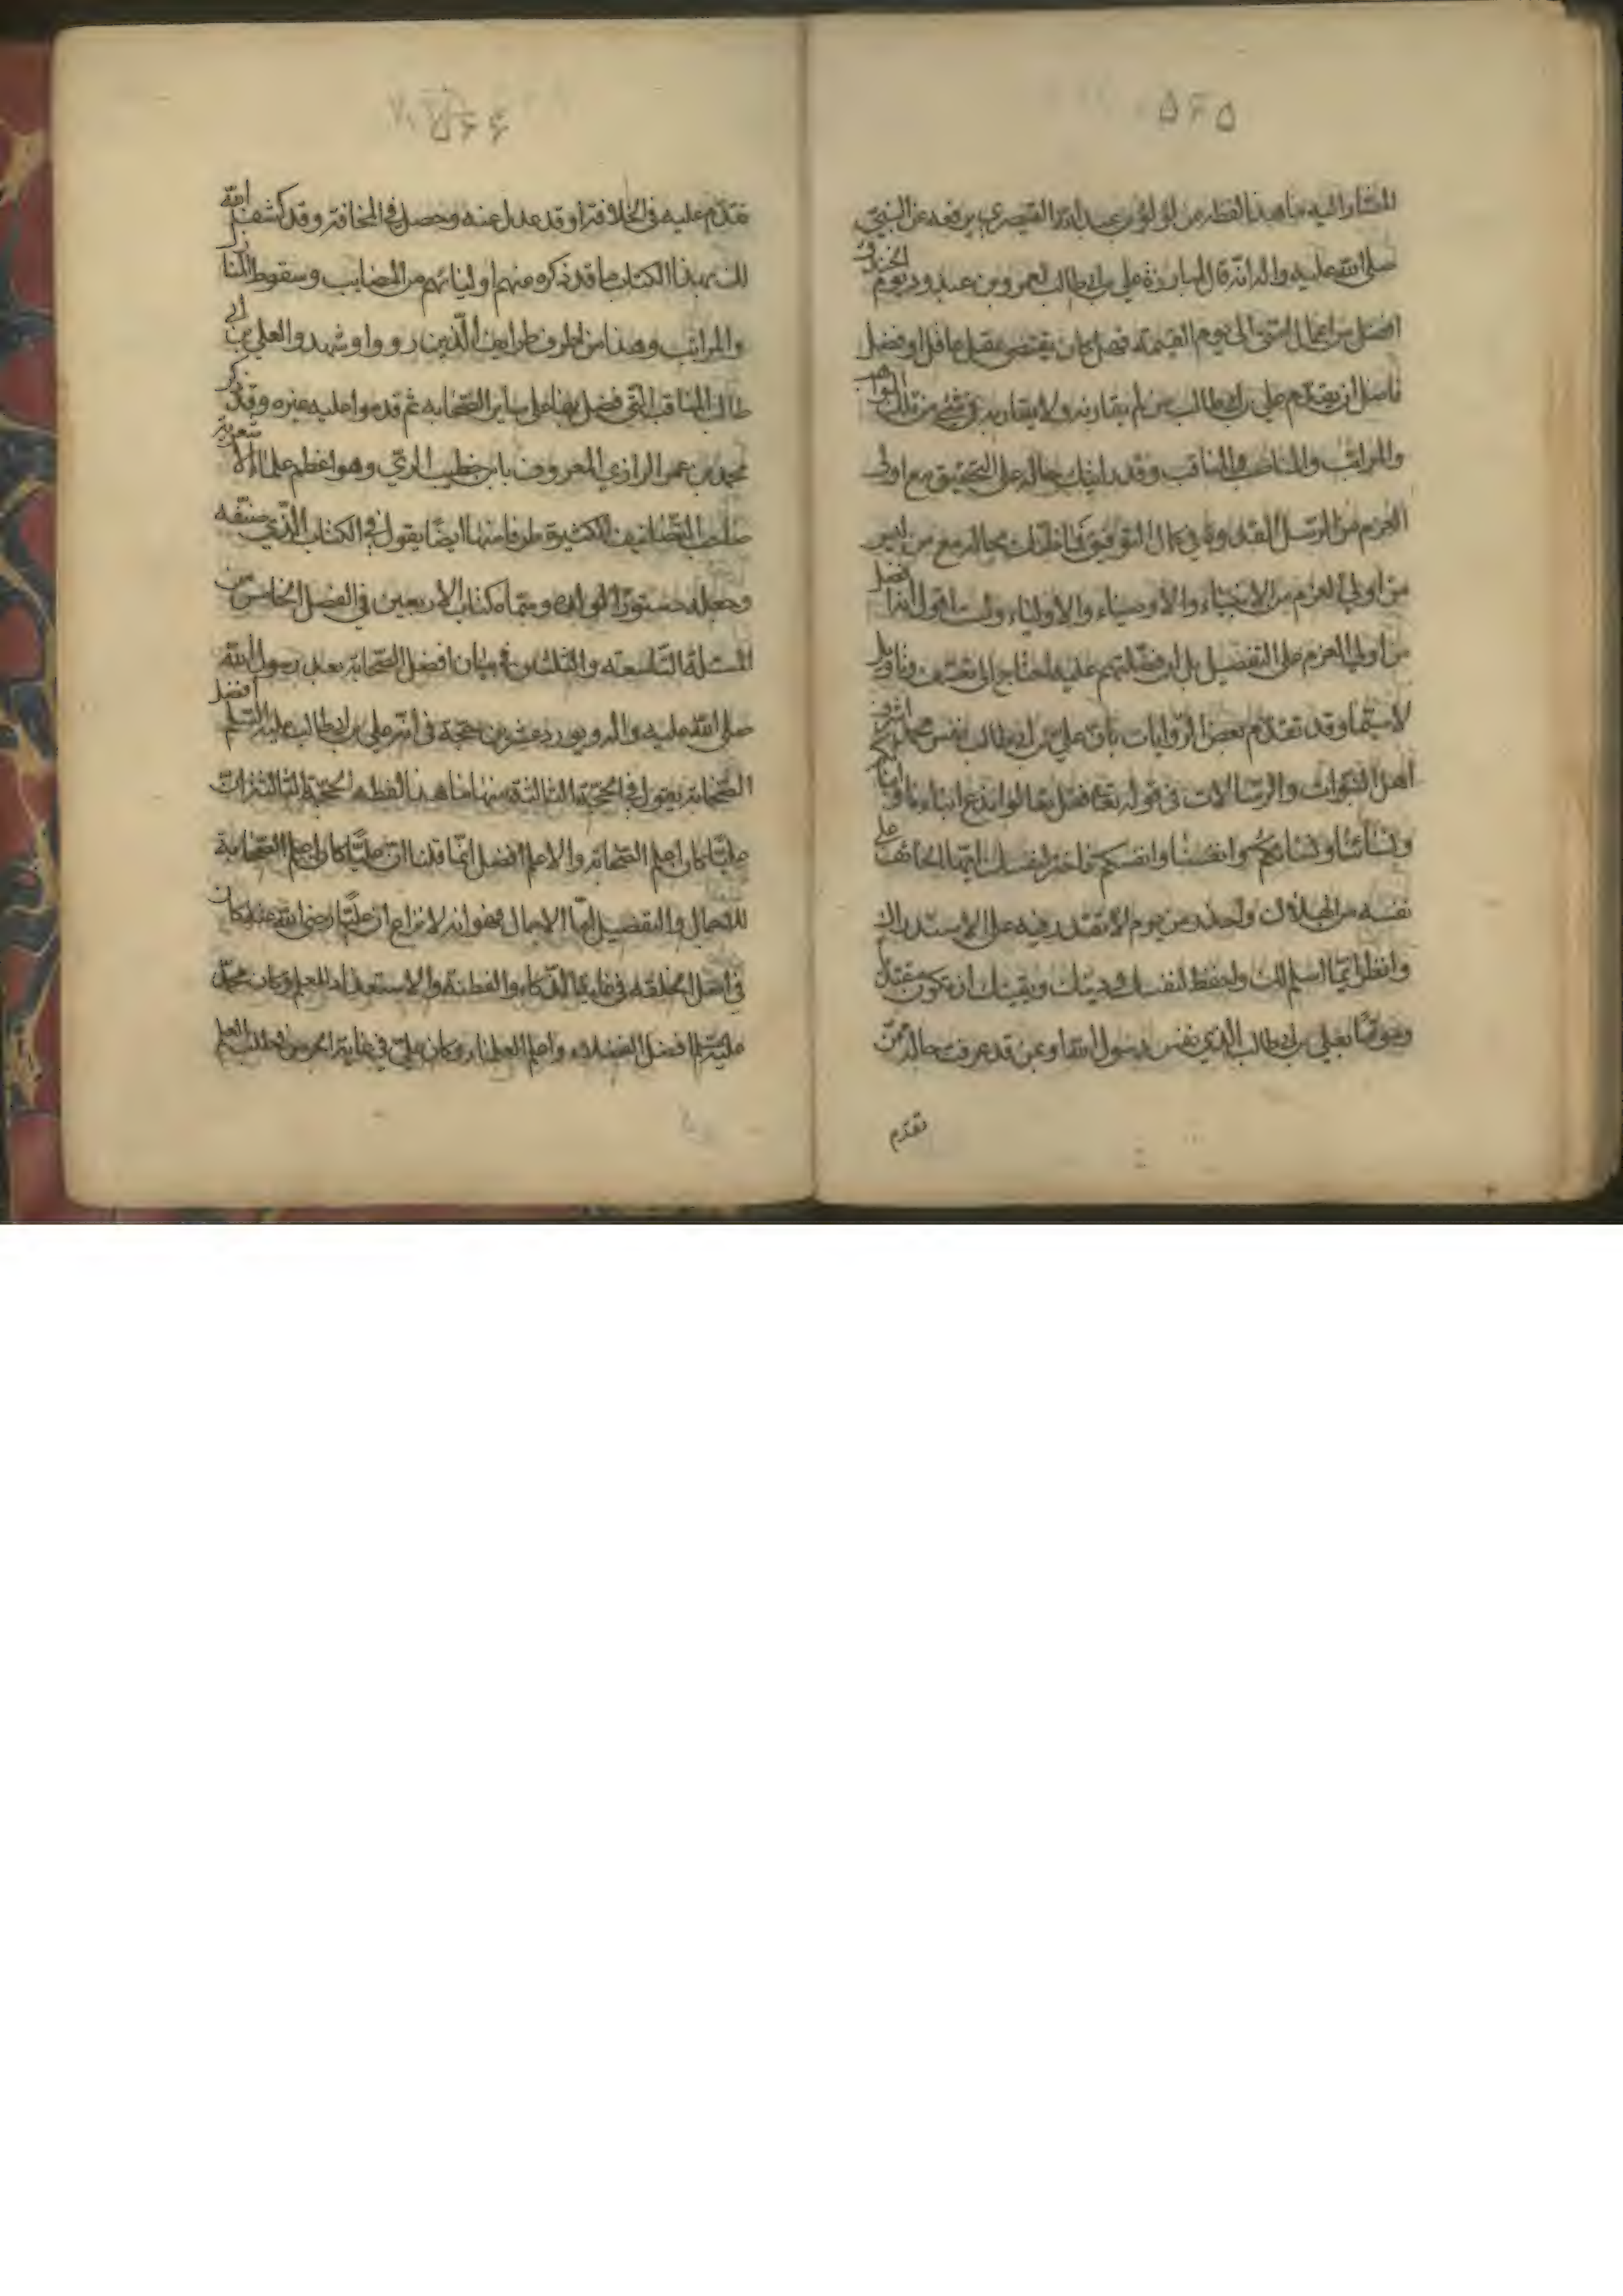 ۵۶۵
المشار اليه ما هذا لفظه من لؤلؤ بن عبد الله القيصري يرفعه عن النبي
صلى الله عليه واله انه قال لمبارزة علي بن ابي طالب لعمرو بن عبد ود يوم الخندق
افضل من اعمال امتي الى يوم القيمة فهل كان يقتضي عقل عاقل او فضل
فاضل ان يقدم على علي بن ابي طالب من لم يقارنه ولا يقاربه في شئ من تلك المواهب
والمراتب والمناصب والمناقب وقد رايت حاله على التحقيق مع اولي
العزم من الرسل
من اولي العزم من الانبياء والاوصياء والاولياء ولست اقول انه افضل
من اولي العزم على التفضيل بل ان فضلتهم عليه احتاج الى تعسف وتاويل
لا سيما وقد تقدم بعض الروايات بان علي بن ابي طالب نفس محمد اشرف
اهل النبوات والرسالات في قوله تعالى فقل تعالوا ندع ابناءنا وابناءكم
ونساءنا ونساءكم وانفسنا وانفسكم فاختر لنفسك ايها الخائف على
نفسه من الهلاك واحذر من يوم لا تقدر فيه على الاستدراك
وانظر ايما اسلم لك واحفظ لنفسك في دينك ويقينك ان تكون مقتديا
وموتما بعلي بن ابي طالب الذي نفس رسول الله او بمن قد عرفت حاله ممن
تقدم
۵۶۶
تقدم عليه في الخلافة او قد عدل عنه وحصل في المخافة وقد كشف الله
لك بهذا الكتاب ما قد ذكره منهم اوليائهم من المصايب وسقوط المنازل
والمراتب وهذا من اطرف طرايف الذين رووا وشهدوا لعلي بن ابي
طالب المناقب التي فضل بها على ساير الصحابه ثم قدموا عليه غيره وقد ذكر
محمد بن عمر الرازي المعروف بابن خطيب الري وهو اعظم علماء الاشعرية
صاحب التصانيف الكثيرة طرفا منها ايضا يقول في الكتاب الذي صنفه
وجعله دستورا لولده وسماه كتاب الاربعين في الفصل الخامس من
المسئلة التاسعة والثلثين في بيان افضل الصحابة بعد رسول الله
صلى الله عليه واله ويورد عشرين حجة في ان علي بن ابي طالب عليه السلم افضل
الصحابة يقول في الحجة الثالثة منها ما هذا لفظه الحجة الثالثة ان
عليا كان اعلم الصحابة والاعلم افضل انما قلنا ان عليا كان اعلم الصحابة
للاجمال والتفصيل اما الاجمال فهو انه لا نزاع ان عليا رضي الله عنه كان
في اصل الخلقة في غاية الذكاء والفطنة والاستعداد للعلم وكان محمد
عليه السلم افضل الفضلاء واعلم العلماء وكان علي في غاية الحرص في طلب العلم